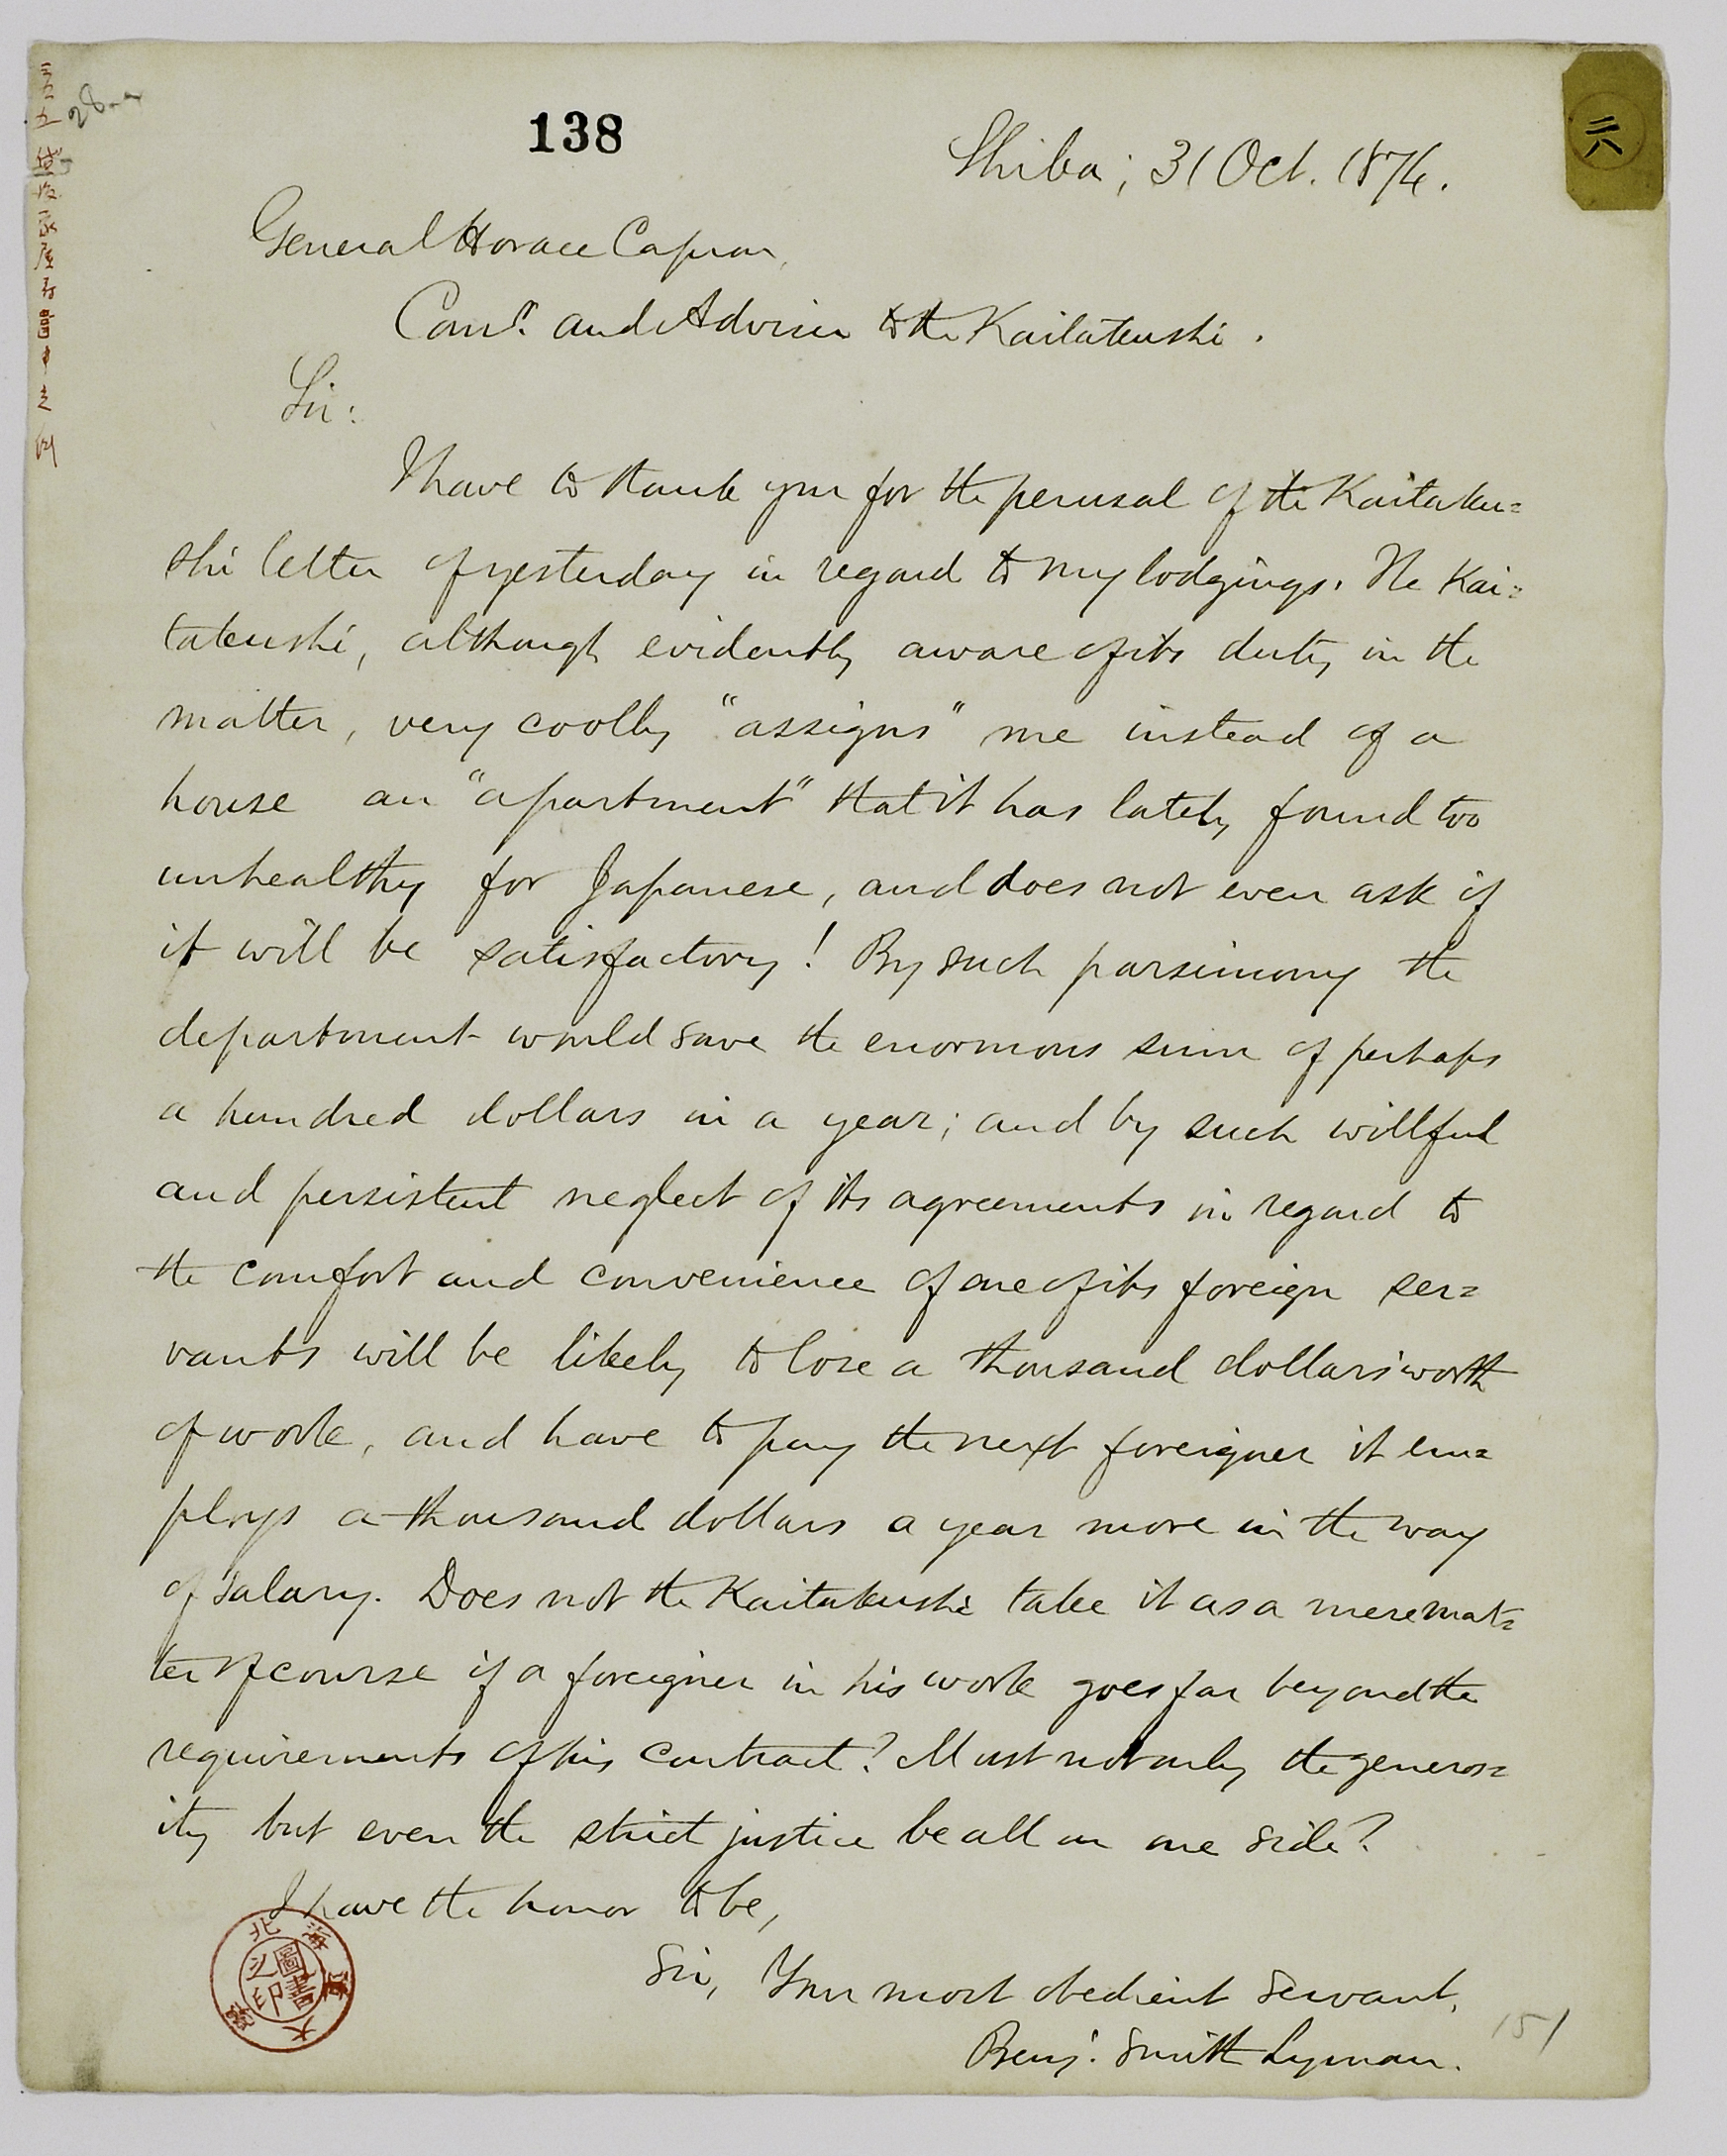 138
二六
Shiba; 31 Oct. 1874.
General Horace Capron,
Com.r and Adviser to the Kaitakushi.
Sir:
I have to thank you for the perusal of the Kaitaku=
shi letter of yesterday in regard to my lodgings. The Kai=
takushi, although evidently aware of its duty in the
matter, very coolly "assigns" me instead of a
house an "apartment" that it has lately found too
unhealthy for Japanese, and does not even ask if
it will be satisfactory! By such parsimony the
department would save the enormous sum of perhaps
a hundred dollars in a year; and by such willful
and persistent neglect of its agreements in regard to
the comfort and convenience of one of its foreign ser=
vants will be likely to lose a thousand dollars' worth
of work, and have to pay the next foreigner it em=
ploys a thousand dollars a year more in the way
of salary. Does not the Kaitakushi take it as a mere mat=
ter of course if a foreigner in his work goes far beyond the
requirements of his contract? Must not only the generos=
ity but even the strict justice be all on one side?
I have the honor to be,
Sir, Your most obedient servant,
Benj. Smith Lyman.
北海道大學
圖書之印
151